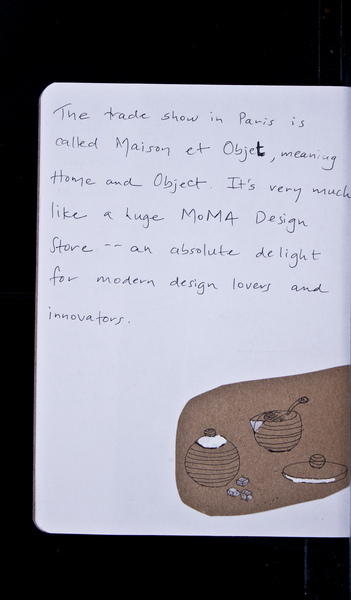 The trade show in Paris is
called Maison et Objet, meaning
Home and Object. It's very much
like a huge MoMA Design
Store -- an absolute delight
for modern design lovers and
innovators.